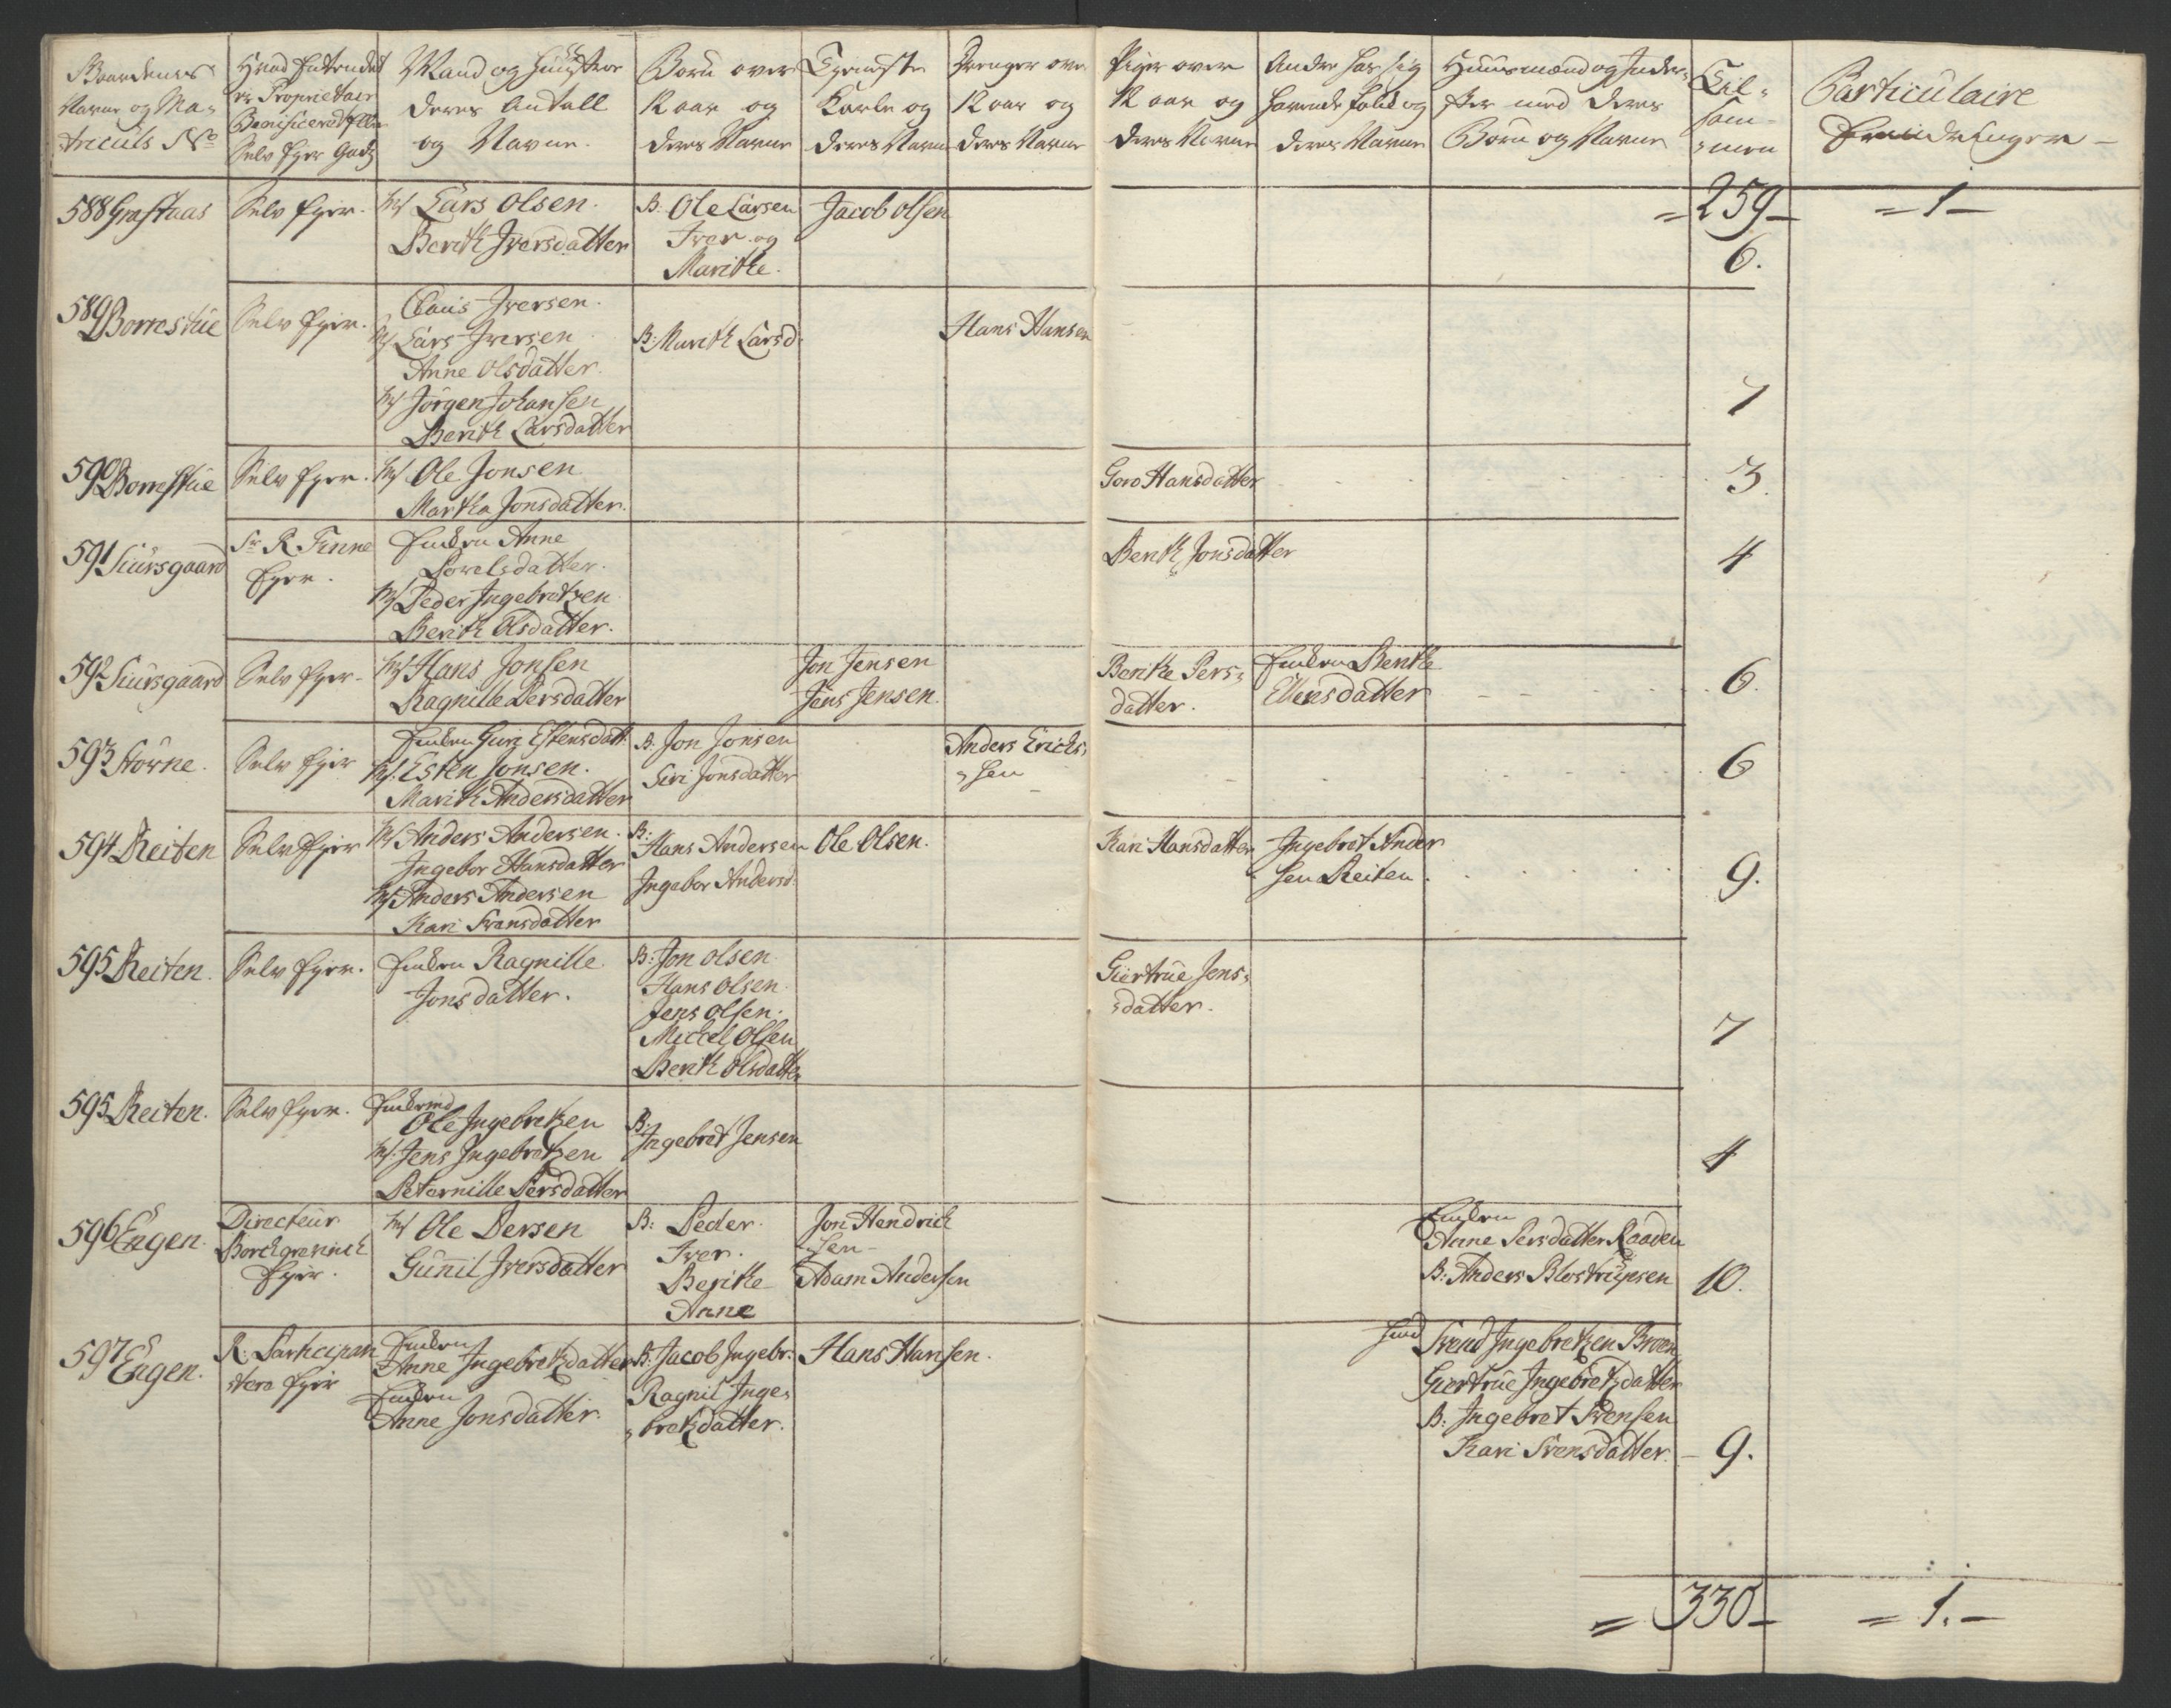 Gaardenes Navne og Matriculs No
Hvad Entendet er Proprietair Beneficeret eller Selv Eyer Gods
Mand og Hustroe deres Antall og Navne.
Børn over 12 aar og deres Navne
Tieniste Karle og deres Navne
Drenger over 12 aar og deres Navne
Piger over 12 aar og deres Navne
Andre hos sig havende folk og deres Navne
Huusmænd og Inderster med deres Børn og Navne
Tilsammen
Particulaire Erindringer -
= 259 -
= 1 -
588 Grastaas
Selv Eyer.
M Lars Olsen.
Berith Iversdatter
B: Ole Larsen
Iver og
Marithe.
Jacob Olsen
6.
589 Borrestue
Selv Eyer.
Claus Iversen.
M Lars Iversen
Anne Olsdatter.
M Jörgen Johansen
Berith Larsdatter
B: Marith Larsd.
Hans Hansen
7
590 Borrestue
Selv Eyer.
M Ole Jonsen
Martha Jonsdatter.
Goro Hansdatter
3.
591 Siursgaard
Sr R. Finne
Eyer.
Enken Anne
Povelsdatter.
M Peder Ingebretzen
Berith Olsdatter.
Berith Jonsdatter
4
592 Siursgaard
Selv Eyer
M Hans Jonsen
Ragnille Persdatter
Jon Jensen
Jens Jensen.
Berithe Pers-
datter.
Enken Berithe
Ellensdatter
6.
593 Störne.
Selv Eyer
Enken Guri Estensdatt:
M. Esten Jonsen.
Marith Andersdatter
B. Jon Jonsen
Siri Jonsdatter
Anders Erichs-
sen
6
594 Reiten
Selv Eyer
M Anders Andersen.
Ingebor Hansdatter
M Anders Andersen
Kari Svensdatter
B:
Hans Andersen
Ingebor Andersd:
Ole Olsen.
Kari Hansdatter
Ingebret Ander
sen Reiten.
9.
595 Reiten.
Selv Eyer.
Enken Ragnille
Jonsdatter.
B: Jon Olsen
Hans Olsen
Jens Olsen.
Michel Olsen
Berith Olsdatter
Giertrue Jons-
datter.
7
595 Reiten.
Selv Eyer.
Enkemd
Ole Ingebretzen
M. Jens Ingebretzen
Peternille Persdatter
B:
Ingebret Jensen
4
596 Engen.
Directeur
Borchgrevinck
Eyer.
M Ole Persen
Gunil Iversdatter
B: Peder.
Iver.
Berithe
Anne
Jon Hendrich
sen -
Adam Andersen
Enken
Anne Persdatter Raaden
B: Anders Blostrupsen
10.
597 Engen.
R: Participan
tere Eyer
Enken
Anne Ingebretzdatter
Enken
Anne Jonsdatter.
B: Jacob Ingebr:
Ragnil Inge-
bretzdatter.
Hans Hansen.
Svend Ingebretzen Broen
Giertrue Ingebretzdatter
B: Ingebret Svensen
Kari Svensdatter.
- 9.
= 330 -
= 1. -